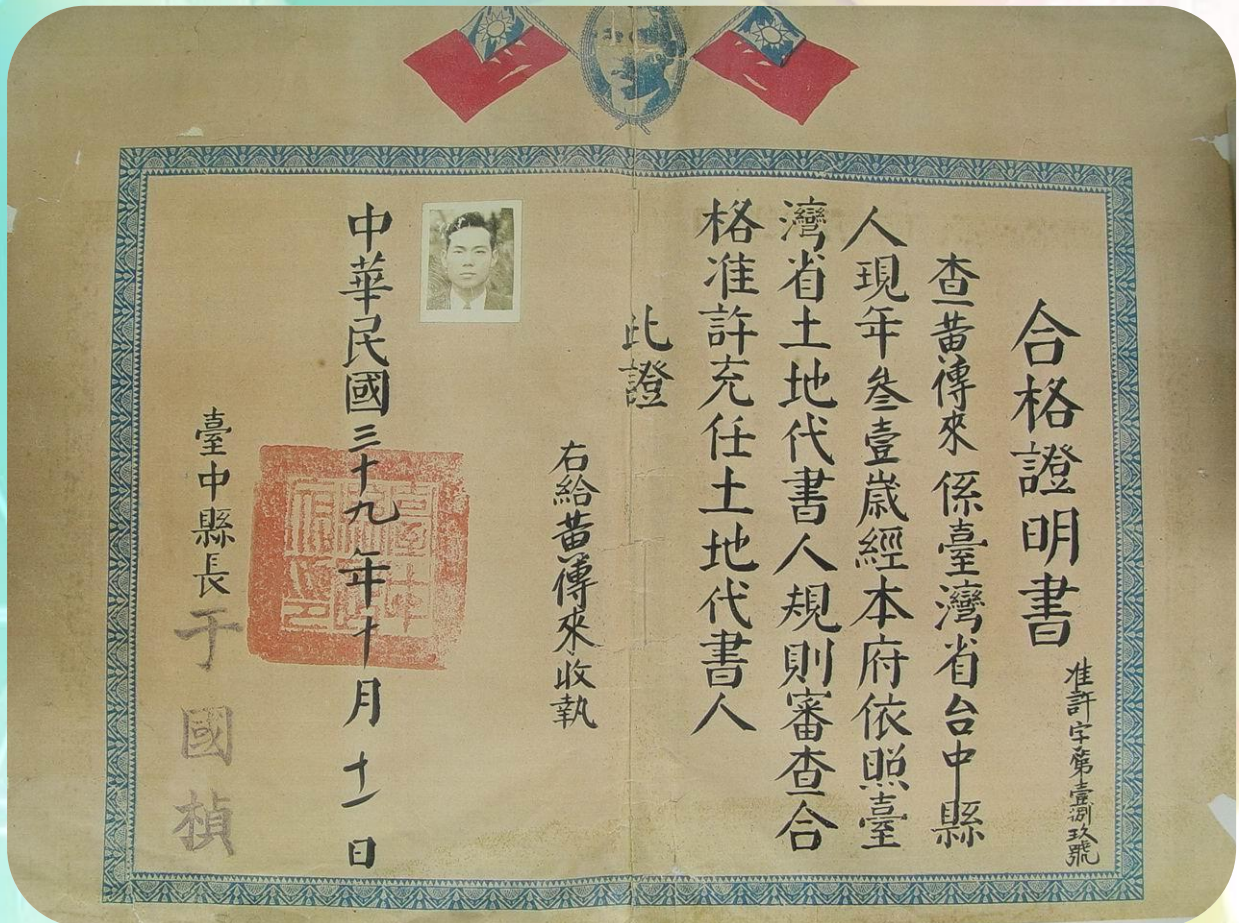 合格證明書
准許字第壹捌玖號
查黄傳來係臺灣省台中縣
人現年叁壹歲經本府依照臺
灣省土地代書人規則審查合
格准許充任土地代書人
此證
右給黄傳來收執
中華民國三十九年十月十一日
臺中縣長于國楨